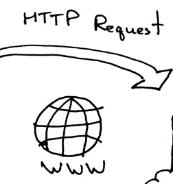 HTTP Request
WWW